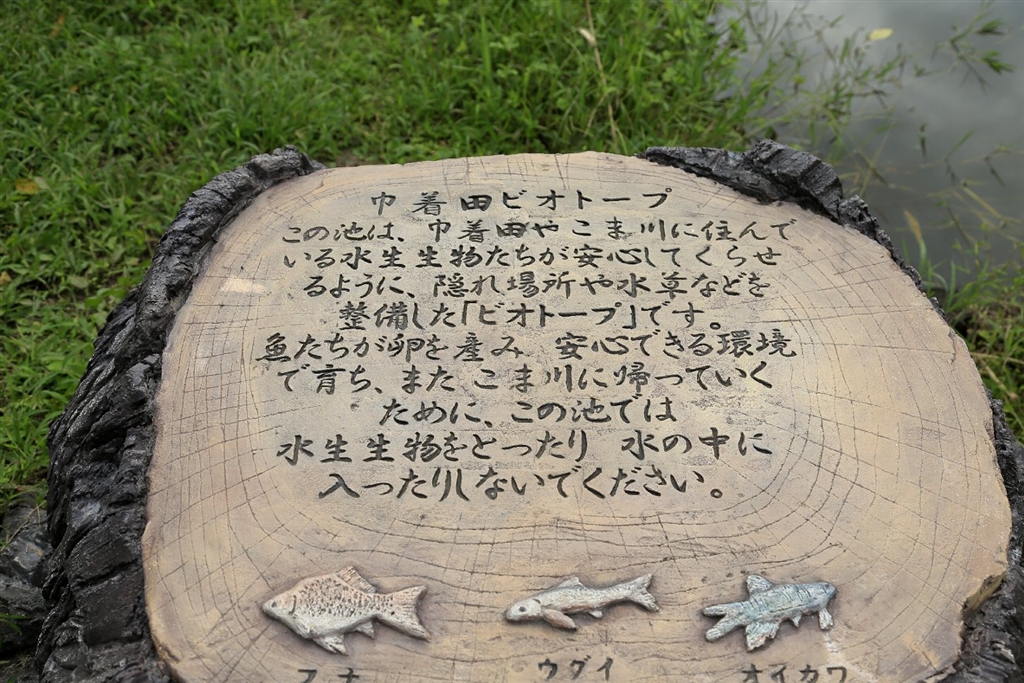 巾着田ビオトープ
この池は、巾着田やこま川に住んで
いる水生生物たちが安心してくらせ
るように、隠れ場所や水草などを
整備した「ビオトープ」です。
魚たちが卵を産み 安心できる環境
で育ち、また こま川に帰っていく
ために、この池では
水生生物をとったり 水の中に
入ったりしないでください。
フナ ウグイ オイカワ